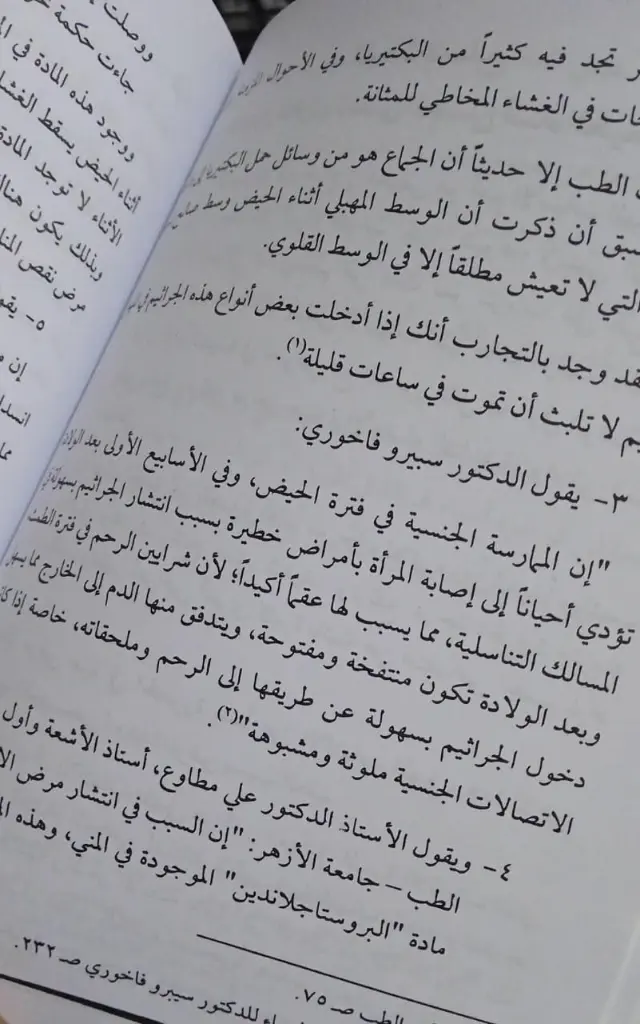 تجد فيه كثيراً من البكتيريا، وفي الأحوال
في الغشاء المخاطي للمثانة.
الطب إلا حديثاً أن الجماع هو من وسائل حمل البكتيريا
سبق أن ذكرت أن الوسط المهبلي أثناء الحيض وسط
التي لا تعيش مطلقاً إلا في الوسط القلوي.
وجد بالتجارب أنك إذا أدخلت بعض أنواع هذه الجراثيم
لا تلبث أن تموت في ساعات قليلة(١).
٣- يقول الدكتور سبيرو فاخوري:
"إن الممارسة الجنسية في فترة الحيض، وفي الأسابيع الأولى بعد الولادة
تؤدي أحياناً إلى إصابة المرأة بأمراض خطيرة بسبب انتشار الجراثيم بسهولة
المسالك التناسلية، مما يسبب لها عقماً أكيداً؛ لأن شرايين الرحم في فترة الطمث
وبعد الولادة تكون منتفخة ومفتوحة، ويتدفق منها الدم إلى الخارج مما
دخول الجراثيم بسهولة عن طريقها إلى الرحم وملحقاته، خاصة إذا
الاتصالات الجنسية ملوثة ومشبوهة"(٢).
٤- ويقول الأستاذ الدكتور علي مطاوع، أستاذ الأشعة وأول
الطب – جامعة الأزهر: "إن السبب في انتشار مرض
مادة "البروستاجلاندين" الموجودة في المني، وهذه
الطب صـ ٧٥.
للدكتور سبيرو فاخوري صـ ٢٣٢.
ووصلت
جاءت حكمة
ووجود هذه المادة في
أثناء الحيض يسقط
الأثناء لا توجد المادة
وبذلك يكون هنالك
مرض نقص
٥- يقول
إن